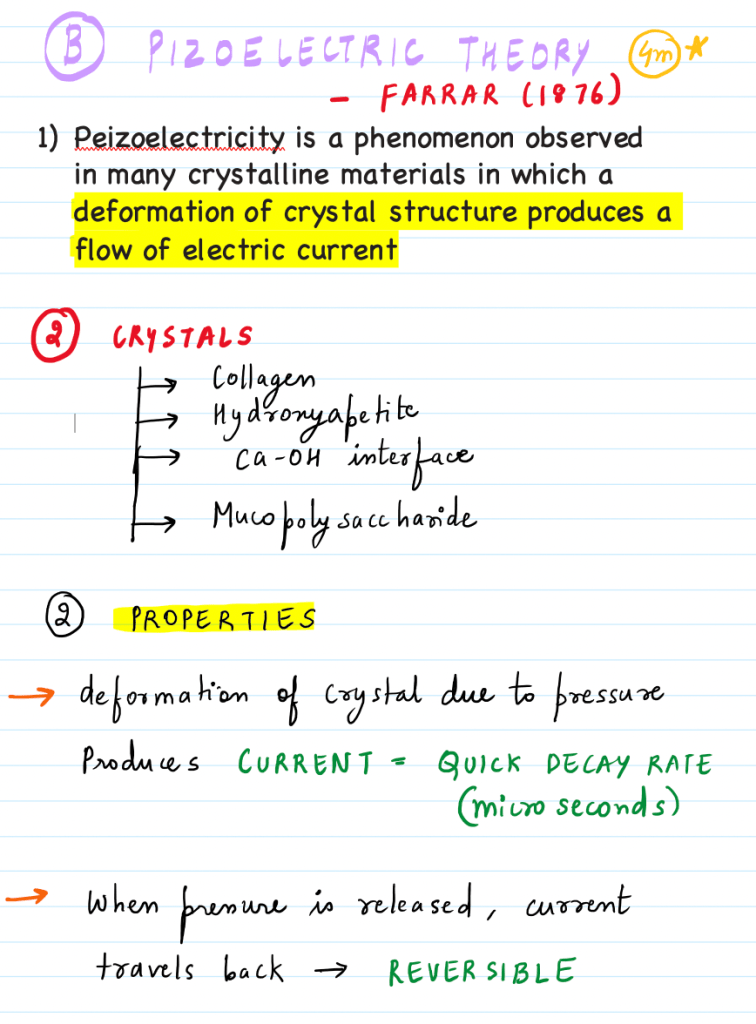 B PIZOELECTRIC THEORY 4m *
- FARRAR (1876)
1) Peizoelectricity is a phenomenon observed
in many crystalline materials in which a
deformation of crystal structure produces a
flow of electric current
2 CRYSTALS
→ Collagen
→ Hydroxyapetite
→ Ca-OH interface
→ Mucopolysaccharide
2 PROPERTIES
→ deformation of crystal due to pressure
Produces CURRENT = QUICK DECAY RATE
(micro seconds)
→ When pressure is released, current
travels back → REVERSIBLE